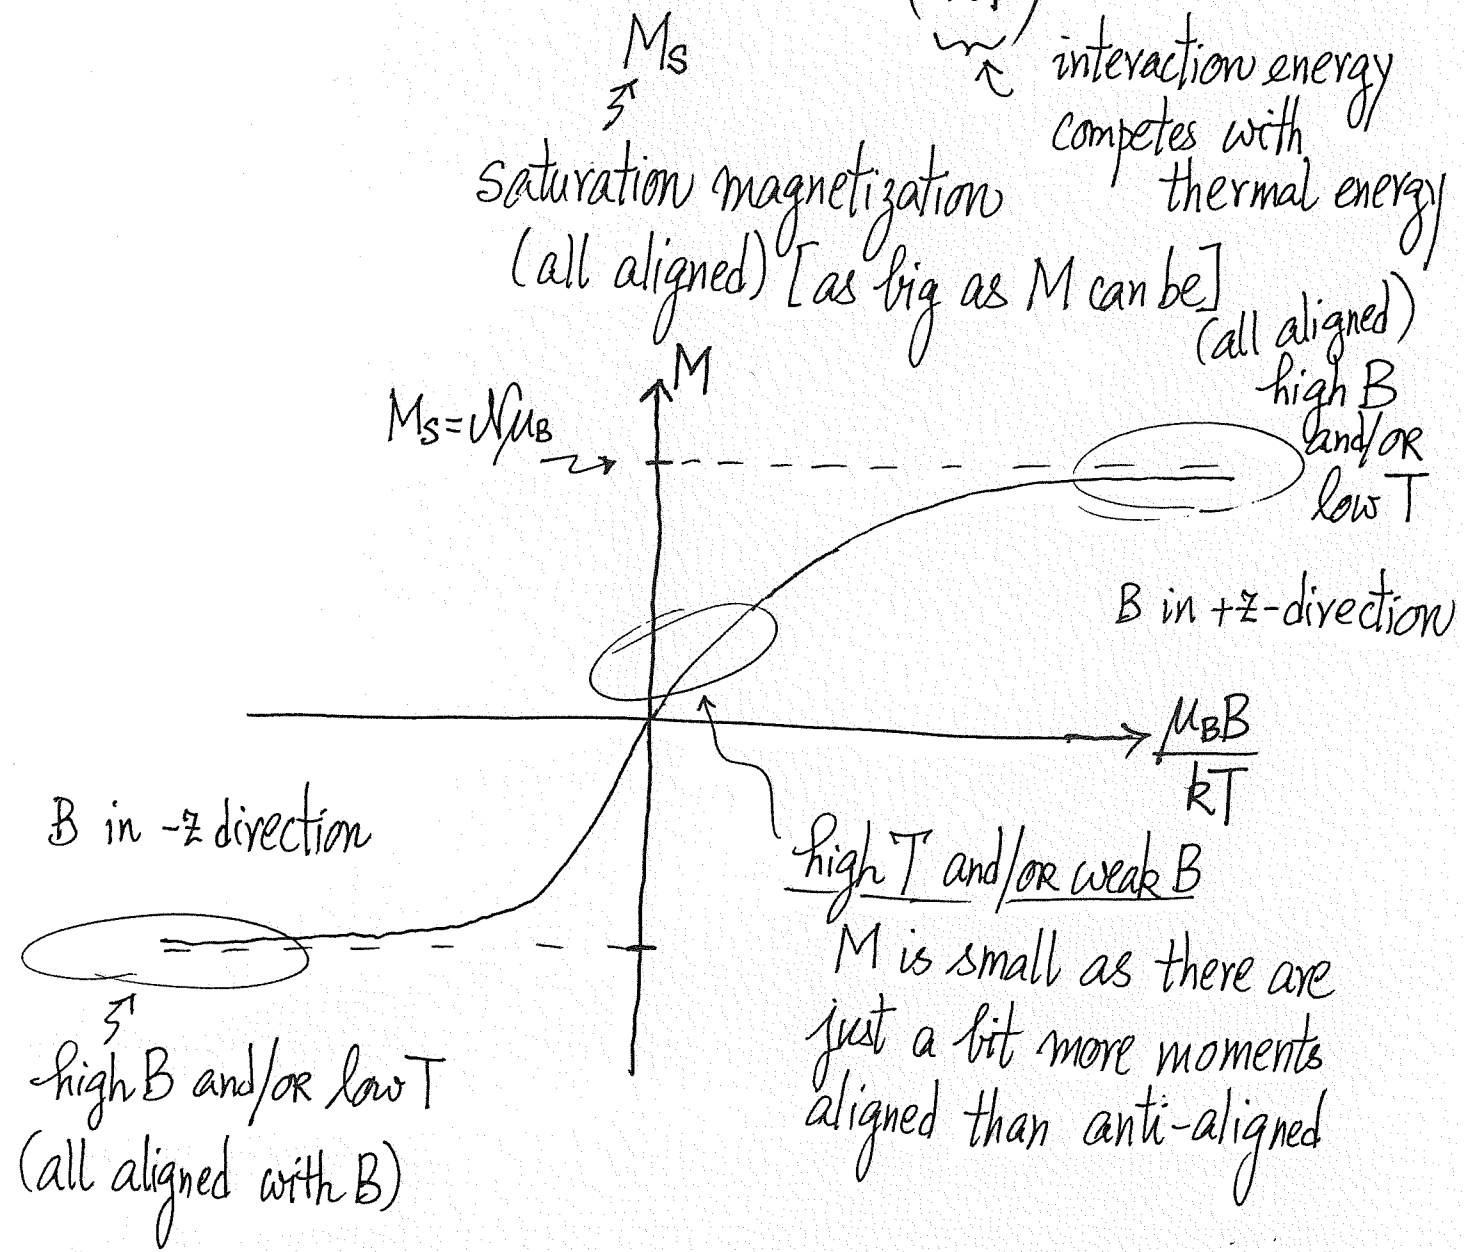 M_S
interaction energy
competes with
thermal energy
saturation magnetization
(all aligned) [as big as M can be]
(all aligned)
high B
and/or
low T
M
M_S = Nμ_B
B in +z-direction
μ_B B
kT
B in -z direction
high T and/or weak B
M is small as there are
just a bit more moments
aligned than anti-aligned
high B and/or low T
(all aligned with B)